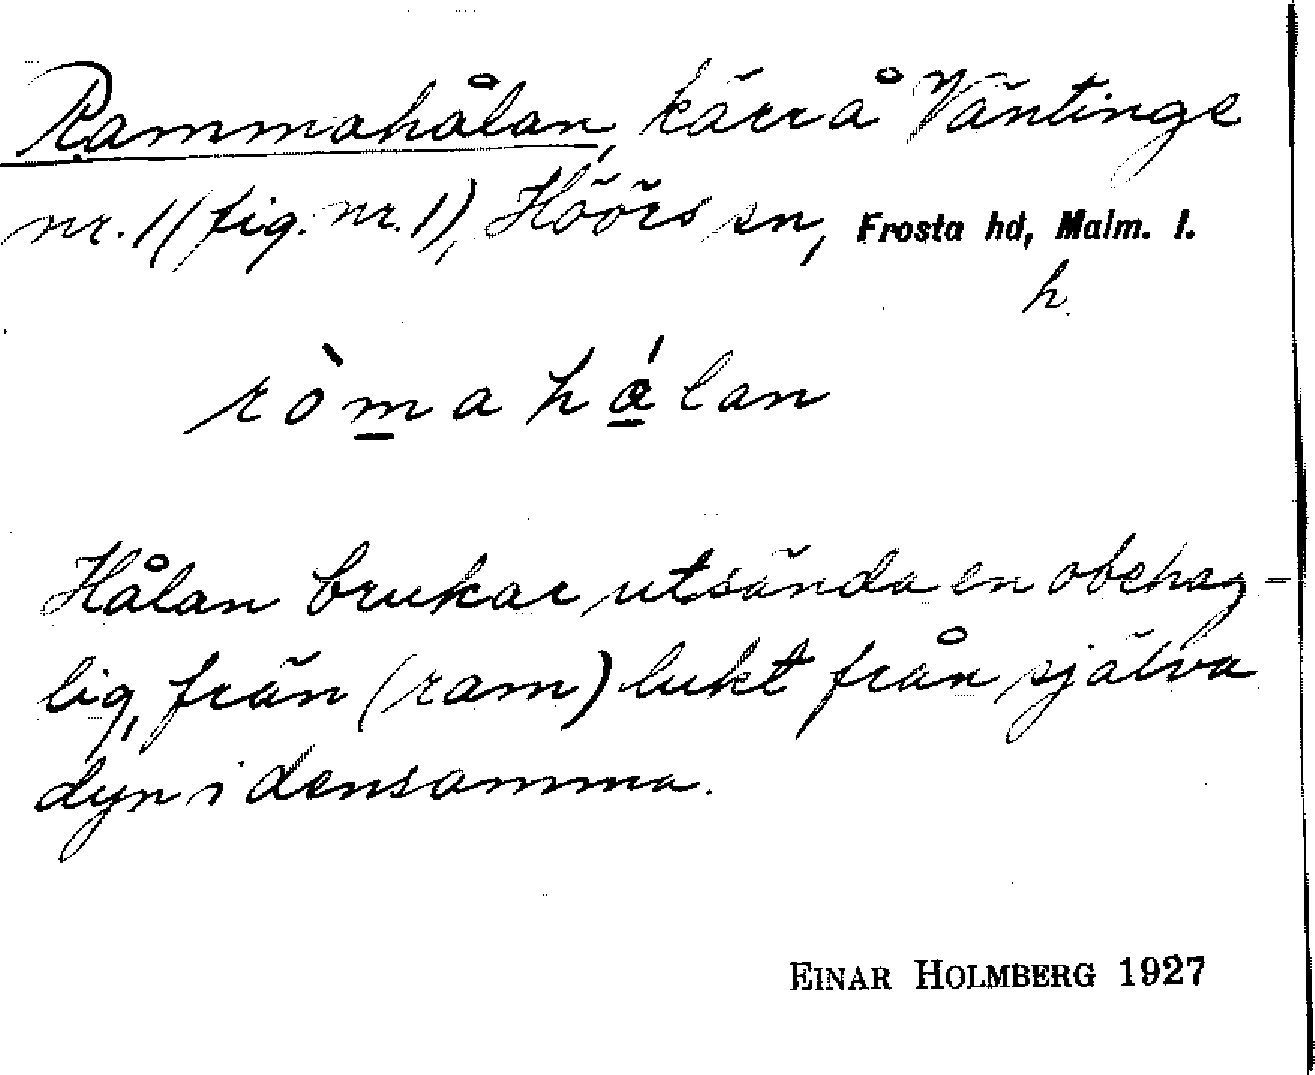 Rammahålan, kärr å Väntinge
nr. 1 (fig. nr. 1), Höörs sn, Frosta hd, Malm. l.
h.
ròmahálan
Hålan brukar utsända en obehag-
lig, frän (ram) lukt från själva
dyn i densamma.
EINAR HOLMBERG 1927